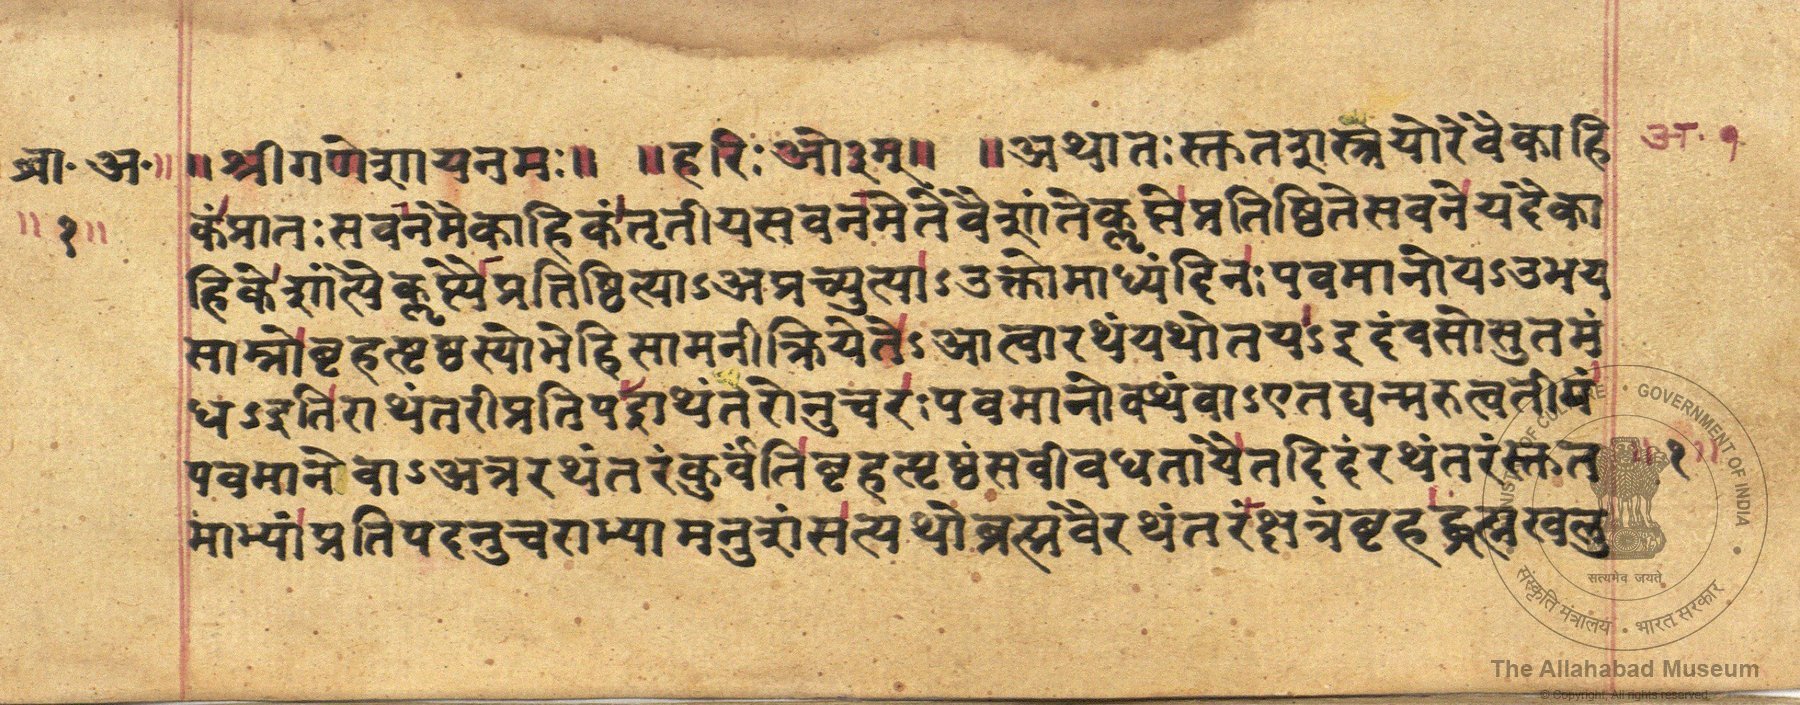 ब्रा॰ अ॰॥ ॥श्रीगणेशायनमः॥ ॥हरिः ओ३म्॥ ॥अथातःस्तुतशस्त्रयोरेवैकाहि अ॰ १
॥१॥ कंप्रातःसवनमैकाहिकंतृतीयसवनमेतेवैशांतेकॢप्तेप्रतिष्ठितेसवनेयदैका
हिकेशांत्यैकॢप्त्यैप्रतिष्ठित्याऽअप्रच्युत्याऽउक्तोमाध्यंदिनःपवमानोयऽउभय
साम्नोबृहत्पृष्ठस्योभेहिसामनीक्रियेतेऽआत्वारथंयथोतयऽइदंवसोसुतमं
धऽइतिराथंतरीप्रतिपद्राथंतरोनुचरःपवमानोक्थंवाऽएतद्यन्मरुत्वतीयं
पवमानेवाऽअत्ररथंतरंकुर्वंतिबृहत्पृष्ठंसवीवधतायैतदिदंरथंतरंस्तुत ॥१॥
माभ्यांप्रतिपदनुचराभ्यामनुशंसत्यथोब्रह्मवैरथंतरंक्षत्रंबृहद्ब्रह्मखलु
MINISTRY OF CULTURE • GOVERNMENT OF INDIA
सत्यमेव जयते
संस्कृति मंत्रालय • भारत सरकार
The Allahabad Museum
© Copyright, All rights reserved.